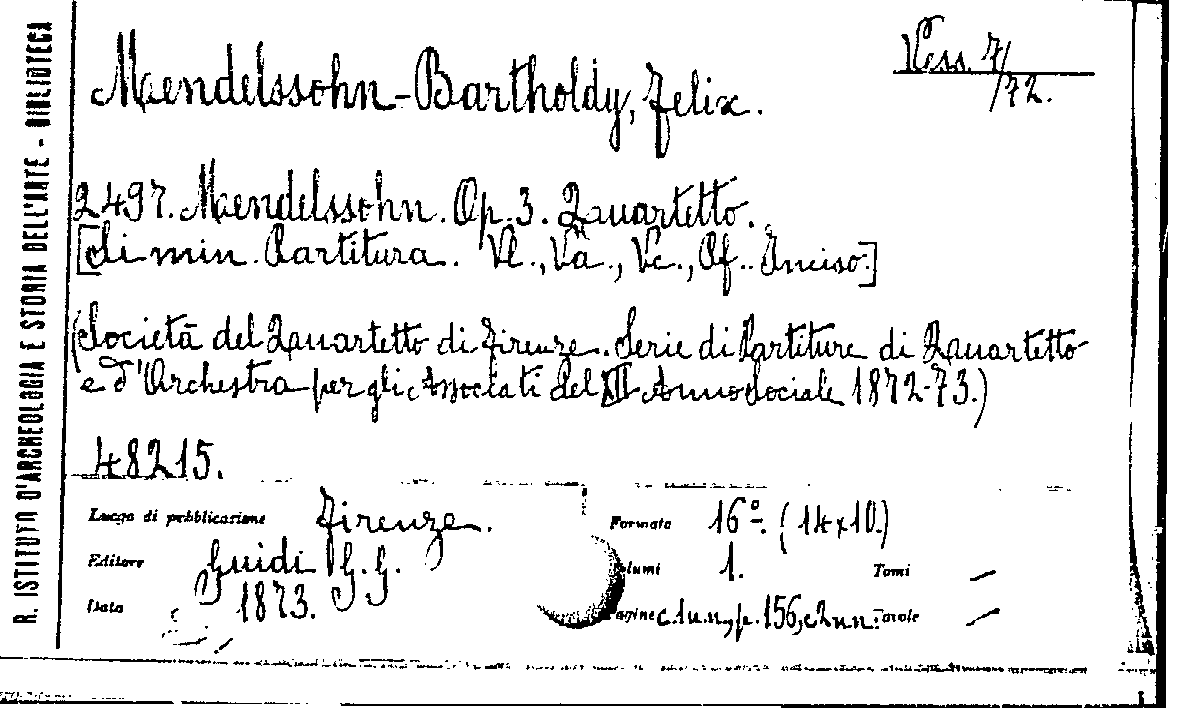 R. ISTITUTO D'ARCHEOLOGIA E STORIA DELL'ARTE - BIBLIOTECA
Vess. 7/
/72.
Mendelssohn-Bartholdy, Felix.
2497. Mendelssohn. Op. 3. Quartetto.
[di min. Partitura. Vl., Va., Vc., Pf.. Inciso.]
(Società del Quartetto di Firenze. Serie di Partiture di Quartetto
e d'Orchestra per gli Associati del XII Anno Sociale 1872-73.)
48215.
Luogo di pubblicazione Firenze.
Formato 16º. (14x10.)
Editore Guidi G. G.
Volumi 1. Tomi —
Data 1873.
Pagine c. 1 n.n., p. 156, c 2 n.n. Tavole —